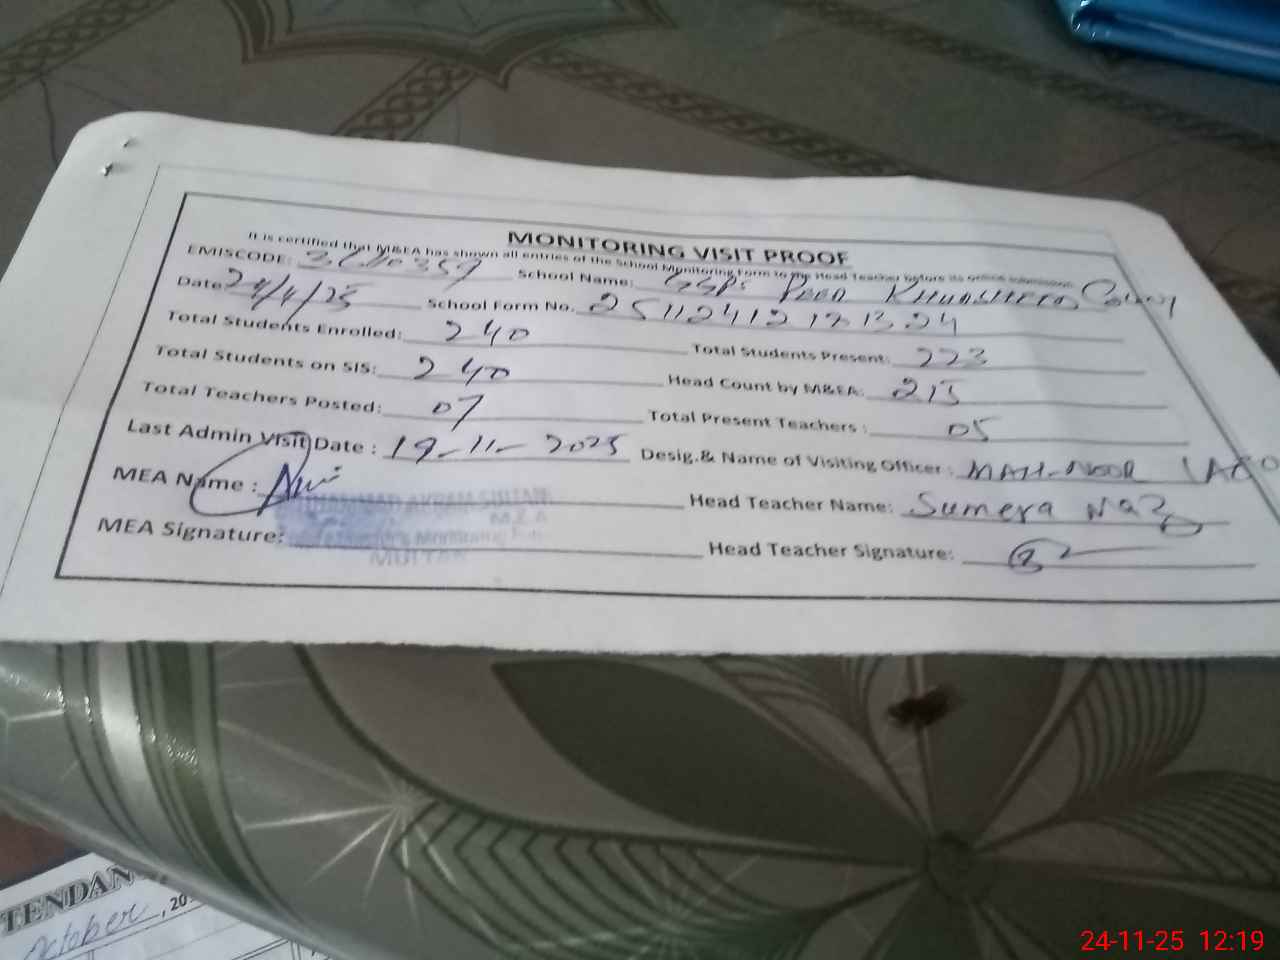 MONITORING VISIT PROOF
It is certified that M&EA has shown all entries of the School Monitoring Form to the Head Teacher before its online submission.
EMISCODE: School Name: GGPS Peer Khursheed Colony
Date: 24/11/25 School Form No. 25112412121324
Total Students Enrolled: 240 Total Students Present: 223
Total Students on SIS: 240 Head Count by M&EA: 215
Total Teachers Posted: 07 Total Present Teachers: 05
Last Admin Visit Date: 19-11-2025 Desig.& Name of Visiting Officer: MAH-NOOR (AEO
MEA Name: Head Teacher Name: Sumera Naz
MUHAMMAD AKRAM
MEA Signature: Monitoring Head Teacher Signature:
MULTAN
TENDAN
October, 20
24-11-25 12:19